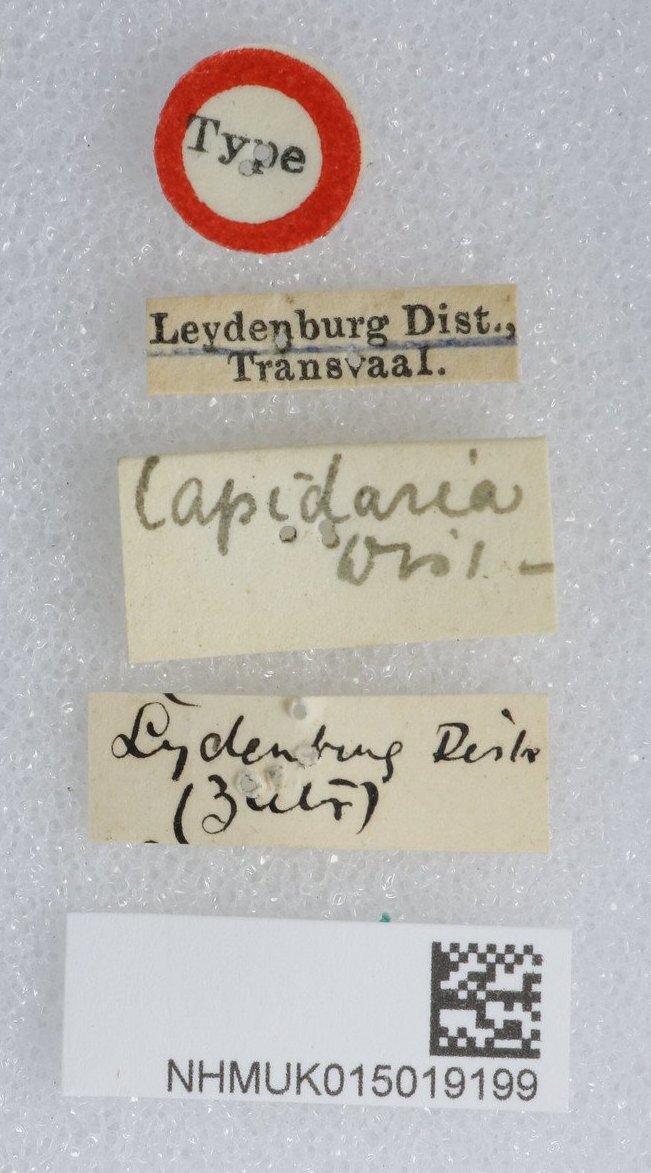 Type
Leydenburg Dist.,
Transvaal.
lapidaria
Dist.
Lydenburg Distr
(Zutr)
NHMUK015019199